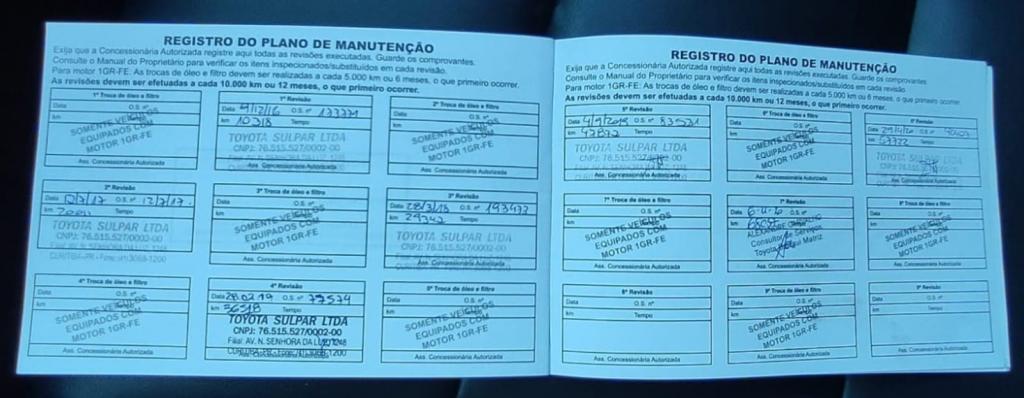 REGISTRO DO PLANO DE MANUTENÇÃO
Exija que a Concessionária Autorizada registre aqui todas as revisões executadas. Guarde os comprovantes.
Consulte o Manual do Proprietário para verificar os itens inspecionados/substituídos em cada revisão.
Para motor 1GR-FE: As trocas de óleo e filtro devem ser realizadas a cada 5.000 km ou 6 meses, o que primeiro ocorrer.
As revisões devem ser efetuadas a cada 10.000 km ou 12 meses, o que primeiro ocorrer.
1ª Troca de óleo e filtro
Data O.S. nº
km
SOMENTE VEÍCULOS
EQUIPADOS COM
MOTOR 1GR-FE
Ass. Concessionária Autorizada
1ª Revisão
Data 9/12/16 O.S. nº
km 10318 Tempo
TOYOTA SULPAR LTDA
CNPJ: 76.515.527/0002-00
Ass. Concessionária Autorizada
2ª Troca de óleo e filtro
Data O.S. nº
km
SOMENTE VEÍCULOS
EQUIPADOS COM
MOTOR 1GR-FE
Ass. Concessionária Autorizada
2ª Revisão
Data O.S. nº
km Tempo
TOYOTA SULPAR LTDA
CNPJ: 76.515.527/0002-00
CURITIBA-PR - Fone: (41) 3068-1200
3ª Troca de óleo e filtro
Data O.S. nº
km
SOMENTE VEÍCULOS
EQUIPADOS COM
MOTOR 1GR-FE
Ass. Concessionária Autorizada
3ª Revisão
Data 28/3/18 O.S. nº 193477
km 29342 Tempo
TOYOTA SULPAR LTDA
CNPJ: 76.515.527/0002-00
Ass. Concessionária Autorizada
4ª Troca de óleo e filtro
Data O.S. nº
km
SOMENTE VEÍCULOS
EQUIPADOS COM
MOTOR 1GR-FE
Ass. Concessionária Autorizada
4ª Revisão
Data 28.02.19 O.S. nº 77574
km Tempo
TOYOTA SULPAR LTDA
CNPJ: 76.515.527/0002-00
Filial: AV. N. SENHORA DA LUZ
CURITIBA-PR - Fone: (41) 3068-1200
Ass. Concessionária Autorizada
5ª Troca de óleo e filtro
Data O.S. nº
km
SOMENTE VEÍCULOS
EQUIPADOS COM
MOTOR 1GR-FE
Ass. Concessionária Autorizada
REGISTRO DO PLANO DE MANUTENÇÃO
Exija que a Concessionária Autorizada registre aqui todas as revisões executadas. Guarde os comprovantes.
Consulte o Manual do Proprietário para verificar os itens inspecionados/substituídos em cada revisão.
Para motor 1GR-FE: As trocas de óleo e filtro devem ser realizadas a cada 5.000 km ou 6 meses, o que primeiro ocorrer.
As revisões devem ser efetuadas a cada 10.000 km ou 12 meses, o que primeiro ocorrer.
5ª Revisão
Data O.S. nº 83571
km 47872 Tempo
TOYOTA SULPAR LTDA
CNPJ: 76.515.527/0002-00
Ass. Concessionária Autorizada
6ª Troca de óleo e filtro
Data O.S. nº
km
SOMENTE VEÍCULOS
EQUIPADOS COM
MOTOR 1GR-FE
Ass. Concessionária Autorizada
6ª Revisão
Data O.S. nº
km Tempo
TOYOTA SULPAR LTDA
Ass. Concessionária Autorizada
7ª Troca de óleo e filtro
Data O.S. nº
km
SOMENTE VEÍCULOS
EQUIPADOS COM
MOTOR 1GR-FE
Ass. Concessionária Autorizada
7ª Revisão
Data O.S. nº
km Tempo
ALEXANDRE
Consultor de Serviços
Toyota Matriz
Ass. Concessionária Autorizada
Data O.S. nº
km
SOMENTE VEÍCULOS
EQUIPADOS COM
MOTOR 1GR-FE
Ass. Concessionária Autorizada
8ª Revisão
Data O.S. nº
km Tempo
Ass. Concessionária Autorizada
9ª Troca de óleo e filtro
Data O.S. nº
km
SOMENTE VEÍCULOS
EQUIPADOS COM
MOTOR 1GR-FE
Ass. Concessionária Autorizada
9ª Revisão
Data O.S. nº
km Tempo
Ass. Concessionária Autorizada